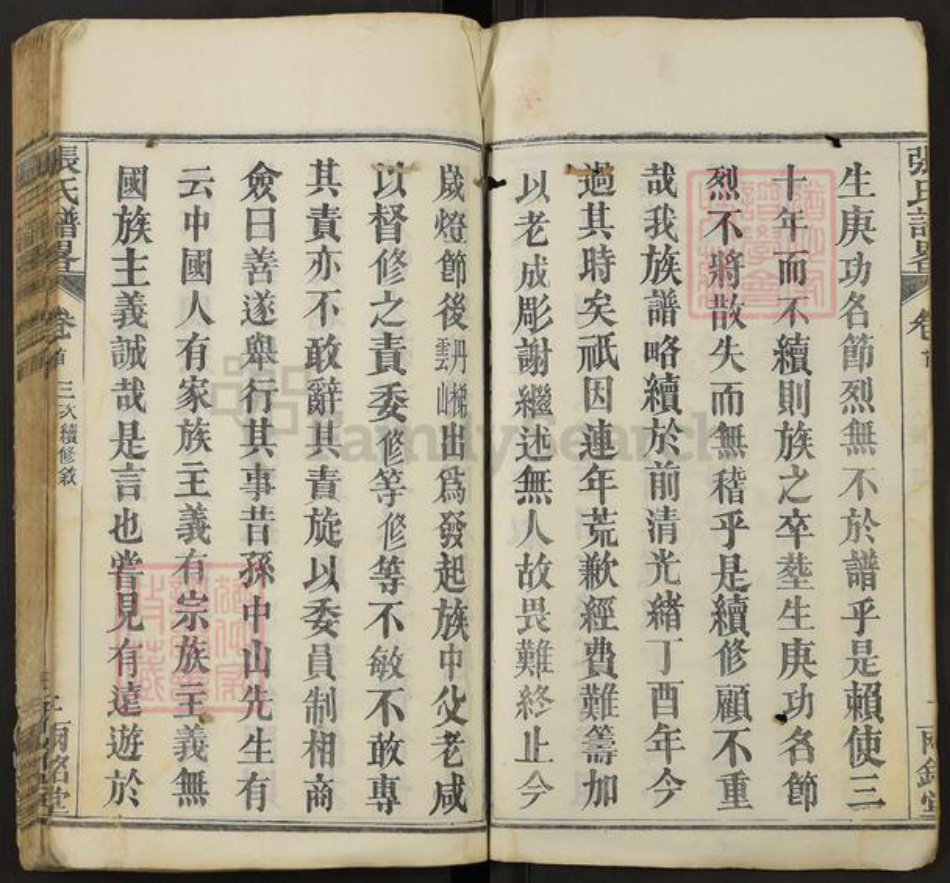 生庚功名節烈無不於譜乎是賴使三
十年而不續則族之卒塟生庚功名節
烈不將散失而無稽乎是續修顧不重
哉我族譜略續於前清光緒丁酉年今
過其時矣祇因連年荒歉經費難籌加
以老成彫謝繼述無人故畏難終止今
嵗燈節後丹梯雲山出爲發起族中父老咸
以督修之責委修等修等不敏不敢專
其責亦不敢辭其責旋以委員制相商
僉曰善遂舉行其事昔孫中山先生有
云中國人有家族主義有宗族主義無
國族主義誠哉是言也嘗見有遠遊於
張氏譜畧 卷首 三次續修敘 二 兩銘堂
FamilySearch